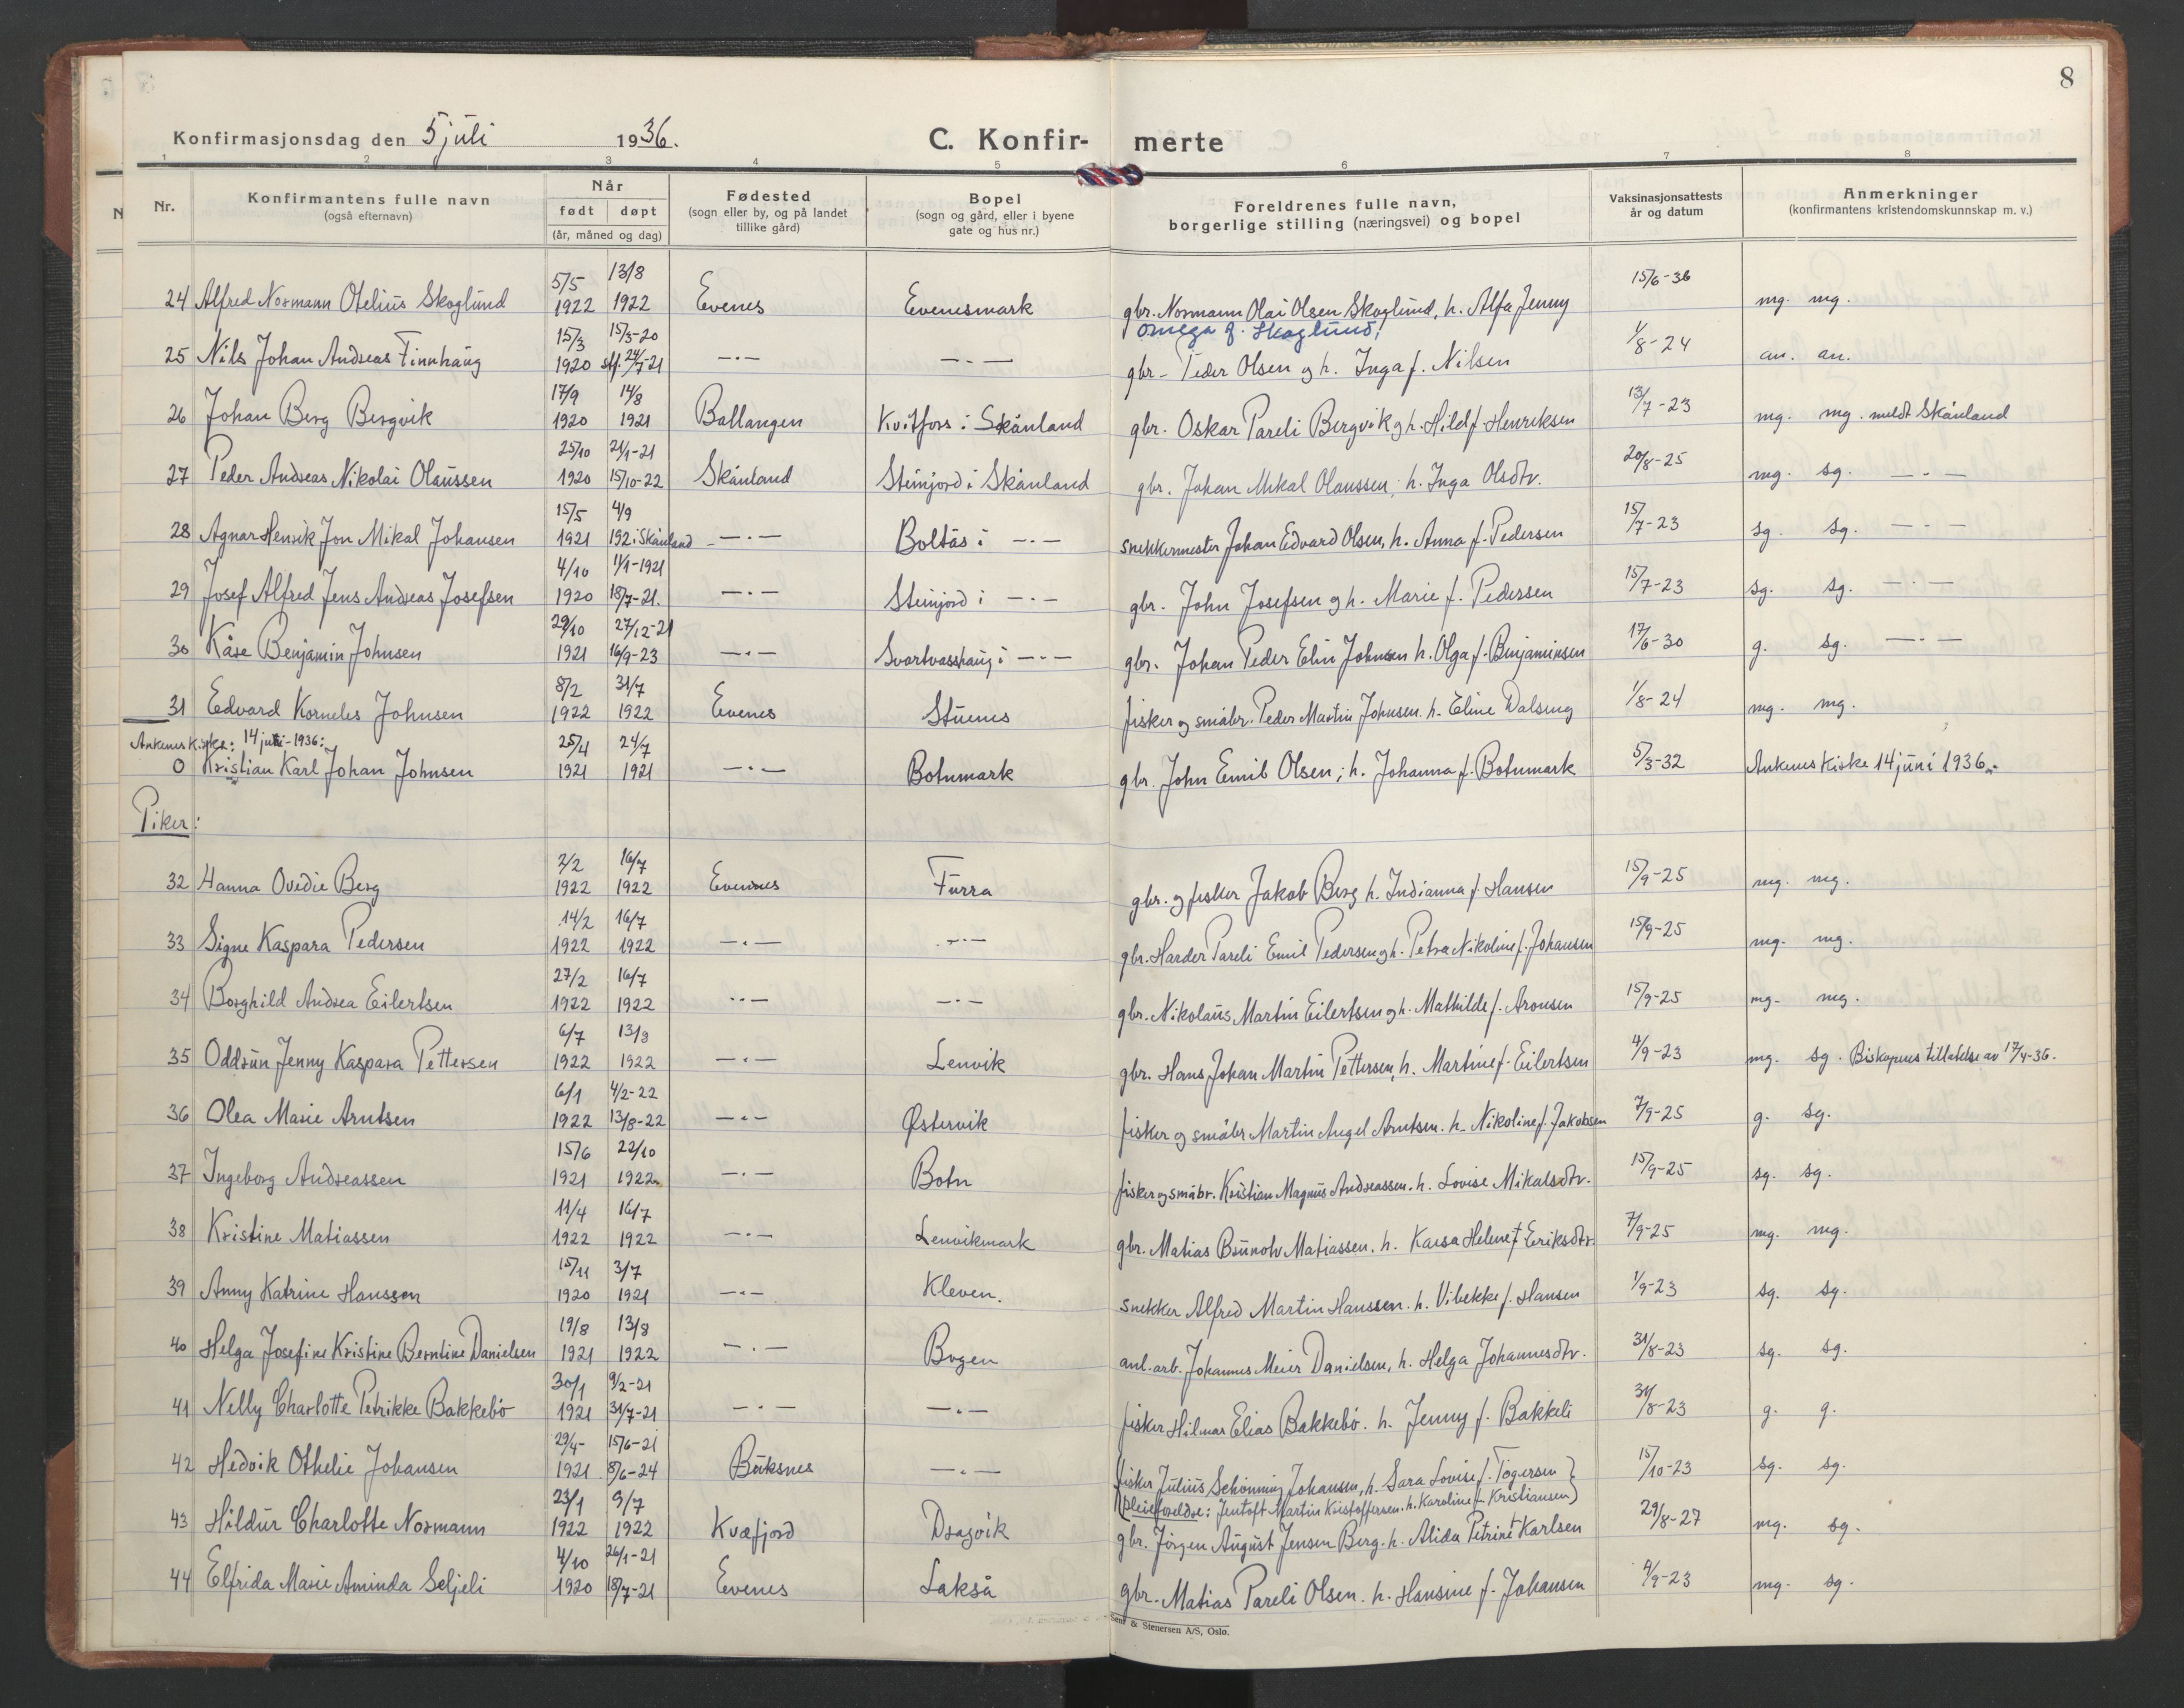 8
Konfirmasjonsdag den 5 juli 1936.
C. Konfir- merte
1 2 3 4 5 6 7 8
Nr.
Konfirmantens fulle navn
(også efternavn)
Når
født døpt
(år, måned og dag)
Fødested
(sogn eller by, og på landet
tillike gård)
Bopel
(sogn og gård, eller i byene
gate og hus nr.)
Foreldrenes fulle navn,
borgerlige stilling (næringsvei) og bopel
Vaksinasjonsattests
år og datum
Anmerkninger
(konfirmantens kristendomskunnskap m. v.)
5/5 13/8 15/6-36
24 Alfred Normann Otelius Skoglund 1922 1922 Evenes Evenesmark gbr. Normann Olai Olsen Skoglund, h. Alfa Jenny mg. mg.
Omega f. Skoglund,
15/3 15/3-20 1/8-24
25 Nils Johan Andreas Finnhaug 1920 stf. 24/7-21 —·— —·— gbr. Peder Olsen og h. Inga f. Nilsen an. an.
17/9 14/8 13/7-23
26 Johan Berg Bergvik 1920 1921 Ballangen Kvitfors i Skånland gbr. Oskar Pareli Bergvik og h. Hild f. Henriksen mg. mg. meldt Skånland
25/10 21/1-21 20/8-25
27 Peder Andreas Nikolai Olaussen 1920 15/10-22 Skånland Steinjord i Skånland gbr. Johan Mikal Olaussen, h. Inga Olsdtr. mg. sg. —·—
15/5 4/9 15/7-23
28 Agnar Henrik Jon Mikal Johansen 1921 192 i Skånland —·— Boltås i —·— snekkermester Johan Edvard Olsen, h. Anna f. Pedersen sg. sg. —·—
4/10 11/1-1921 15/7-23
29 Josef Alfred Jens Andreas Josefsen 1920 18/7-21. —·— Steinjord i —·— gbr. John Josefsen og h. Marie f. Pedersen sg. sg. —·—
29/10 27/12-21 17/6-30
30 Kåre Benjamin Johnsen 1921 16/9-23 —·— Svartvasshaug i —·— gbr. Johan Peder Elin Johnsen h. Olga f. Benjaminsen g. sg. —·—
8/2 31/7 1/8-24
31 Edvard Korneles Johnsen 1922 1922 Evenes Stuenes fisker og småbr. Peder Martin Johnsen. h. Eline Dalsing mg. mg.
Ankenes kirke: 14 juni-1936: 25/4 24/7 5/3-32
0 Kristian Karl Johan Johnsen 1921 1921 —·— Botnmark gbr. John Emil Olsen; h. Johanna f. Botnmark Ankenes kirke 14 juni 1936.
Piker:
2/2 16/7 15/9-25
32 Hanna Ovedie Berg 1922 1922 Evenes Furra gbr. og fisker Jakob Berg h. Indianna f. Hansen mg. mg.
14/2 16/7 15/9-25
33 Signe Kaspara Pedersen 1922 1922 —·— —·— gbr. Harder Pareli Emil Pedersen og h. Petra Nikoline f. Johansen mg. mg.
27/2 16/7 15/9-25
34 Borghild Andrea Eilertsen 1922 1922 —·— —·— gbr. Nikolaus Martin Eilertsen og h. Mathilde f. Aronsen mg. mg.
6/7 13/8 4/9-23
35 Oddrun Jenny Kaspara Pettersen 1922 1922 —·— Lenvik gbr. Hans Johan Martin Pettersen, h. Martine f. Eilertsen mg. sg. Biskopens tillatelse av 17/4-36.
6/1 4/2-22 7/9-25
36 Olea Marie Arntsen 1922 13/8-22 —·— Østervik fisker og småbr Martin Angel Arntsen. h. Nikoline f. Jakobsen g. sg.
15/6 22/10 15/9-25
37 Ingeborg Andreassen 1921 1922 —·— Botn fisker og småbr. Kristian Magnus Andreassen. h. Lovise Mikalsdtr. sg. sg.
11/4 16/7 7/9-25
38 Kristine Matiassen 1922 1922 —·— Lenvikmark gbr. Matias Brunolv Matiassen. h. Kaisa Helene f Eriksdtr. mg. mg.
15/11 3/7 1/9-23
39 Anny Katrine Hanssen 1920 1921 —·— Kleven. snekker Alfred Martin Hanssen. h. Vibekke f. Hansen sg. sg.
19/8 13/8 31/8-23
40 Helga Josefine Kristine Berntine Danielsen 1921 1922 —·— Bogen anl.-arb. Johannes Meier Danielsen, h. Helga Johannesdtr. sg. sg.
30/1 9/2-21 31/8-23
41 Nelly Charlotte Petrikke Bakkebö 1921 31/7-21 —·— —·— fisker Hilmar Elias Bakkebö. h. Jenny f. Bakkeli g. g.
29/4- 15/6-21 15/10-23
42 Hedvik Othelie Johansen 1921 8/6-24 Buksnes —·— fisker Julius Schönning Johansen, h. Sara Lovise f. Tögersen } sg. sg.
(Pleieforeldre: Jentoft Martin Kristoffersen. h. Karoline f. Kristiansen)
23/1 9/7 29/8-27
43 Hildur Charlotte Normann 1922 1922 Kvæfjord Dragvik gbr. Jörgen August Jensen Berg. h. Alida Petrine f Karlsen mg. sg.
4/10 26/1-21 4/9-23
44 Elfrida Marie Aminda Seljeli 1920 18/7-21 Evenes Lakså gbr. Matias Pareli Olsen. h. Hansine f. Johansen mg. sg.
& Stenersen A/S, Oslo.